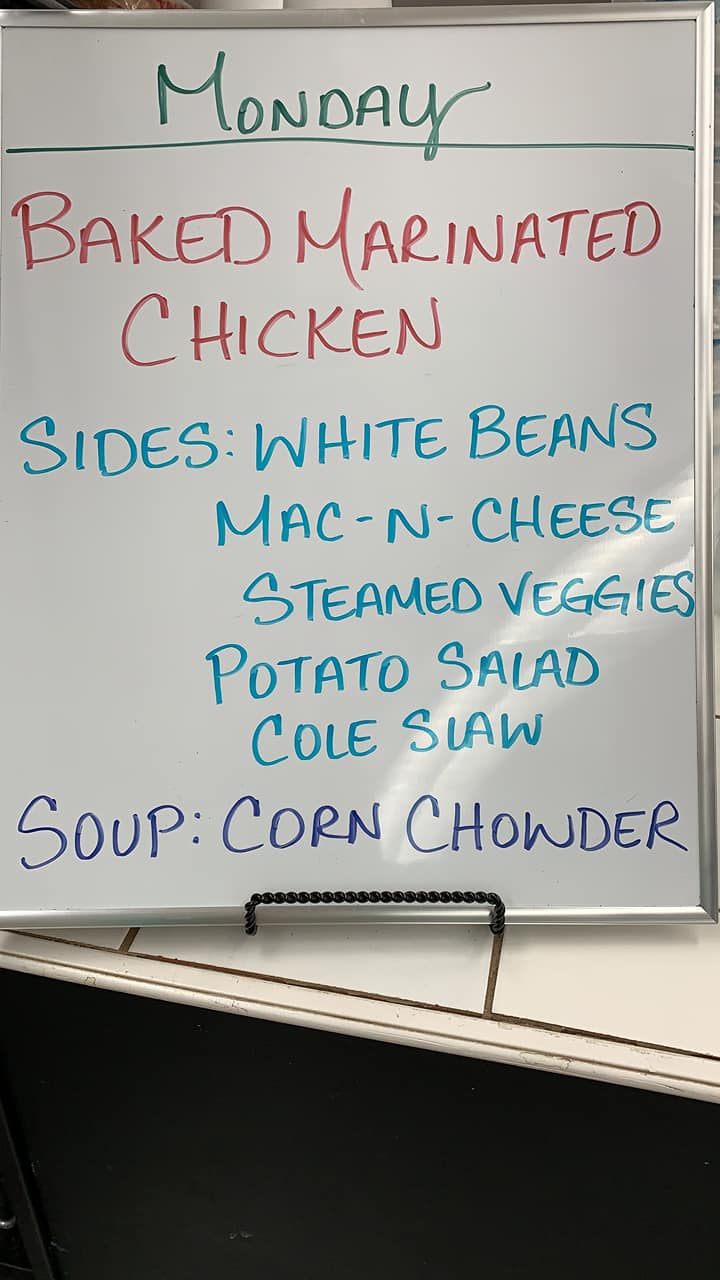 MONDAY
BAKED MARINATED
CHICKEN
SIDES: WHITE BEANS
MAC-N-CHEESE
STEAMED VEGGIES
POTATO SALAD
COLE SLAW
SOUP: CORN CHOWDER